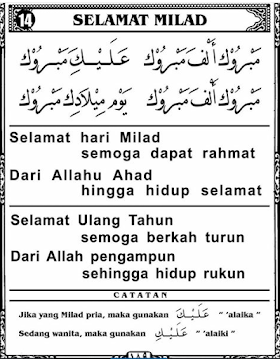 14
SELAMAT MILAD
مَبْرُوْكْ أَلْفَ مَبْرُوْكْ عَلَيْكِ مَبْرُوْكْ
مَبْرُوْكْ أَلْفَ مَبْرُوْكْ يَوْمِ مِيْلَادِكِ مَبْرُوْكْ
Selamat hari Milad
semoga dapat rahmat
Dari Allahu Ahad
hingga hidup selamat
Selamat Ulang Tahun
semoga berkah turun
Dari Allah pengampun
sehingga hidup rukun
CATATAN
Jika yang Milad pria, maka gunakan عَلَيْكَ " 'alaika "
Sedang wanita, maka gunakan عَلَيْكِ " 'alaiki "